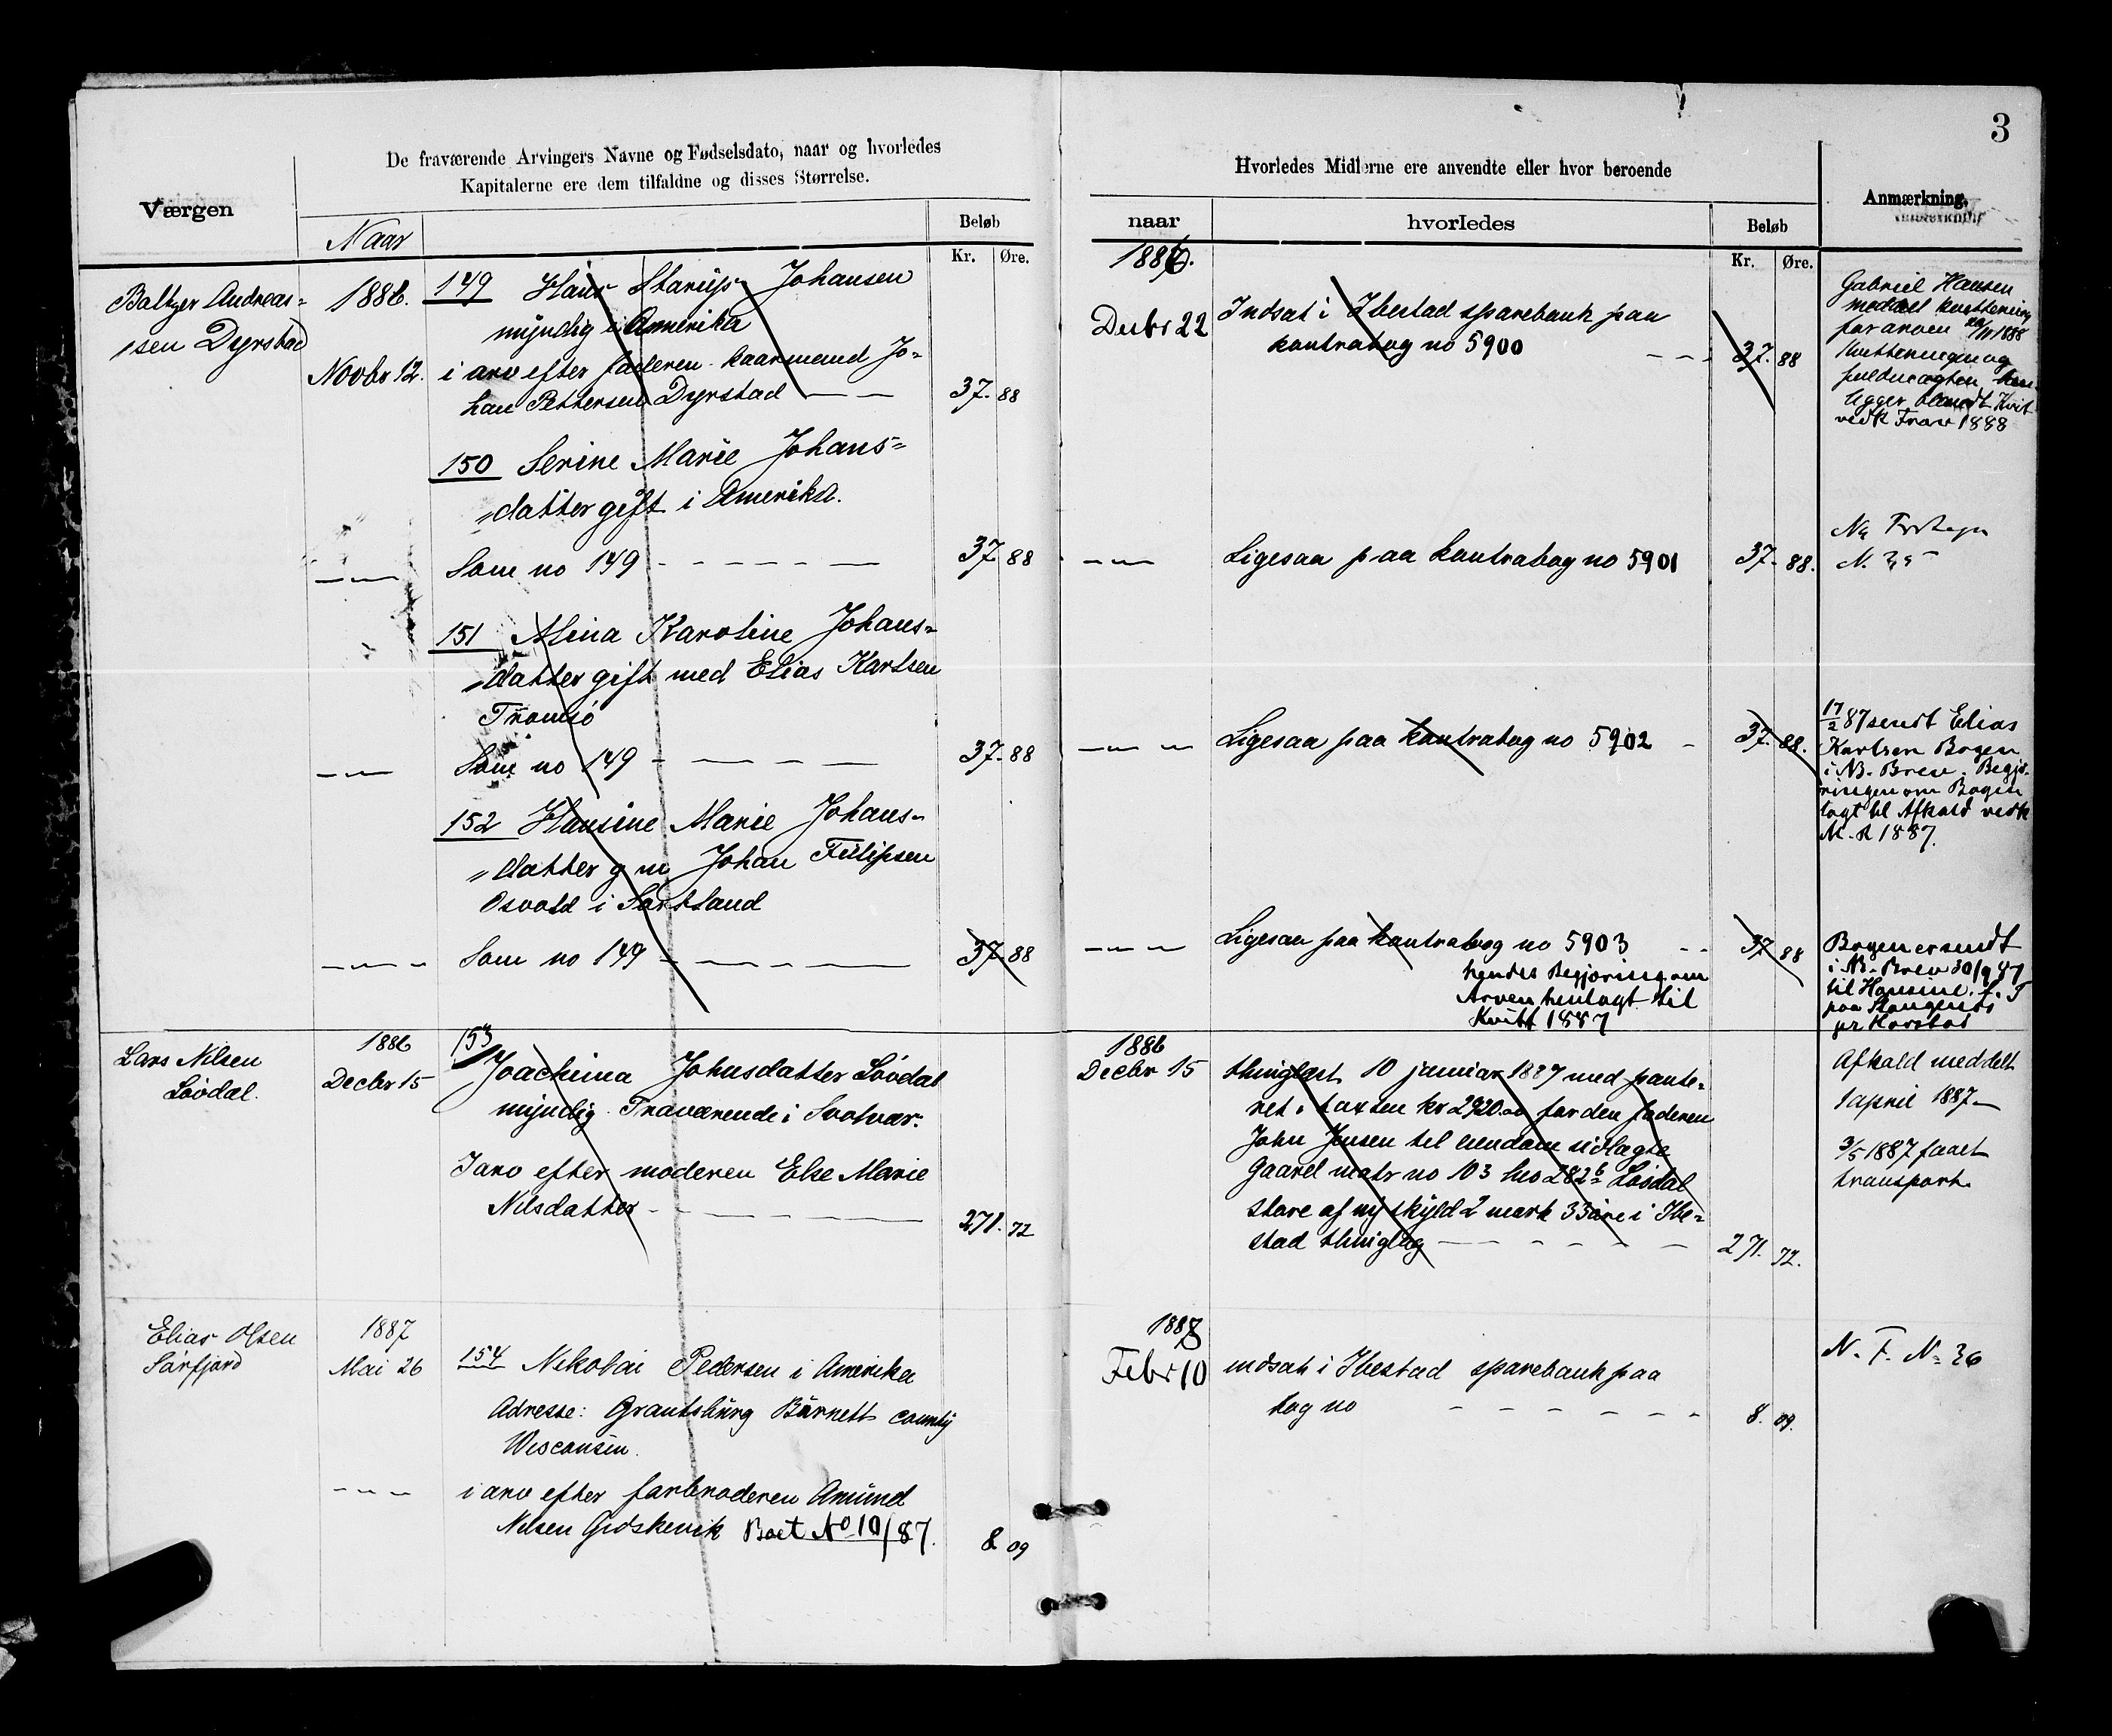 3
De fraværende Arvingers Navne og Fødselsdato, naar og hvorledes
Kapitalerne ere dem tilfaldne og disses Størrelse.
Værgen
Naar
Beløb
Kr. Øre.
Baltzer Andreas-
sen Dyrstad
1886.
Novbr 12.
149 Hans Starup Johansen
myndig i Amerika
i arv efter faderen kaarmand Jo-
han Pettersen Dyrstad — —
37. 88
150 Serine Marie Johans-
datter gift i Amerika.
Som no 149 - - - - - —
37 88
151 Alina Karoline Johans-
datter gift med Elias Karlsen
Tromsö
Som no 149 - — - — —
37. 88
152 Hansine Marie Johans-
datter g m Johan Filipsen
Osvold i Sortland
Som no 149 - — — — —
37. 88
Lars Nilsen
Lövdal.
1886
Decbr 15
153
Joachima Johnsdatter Lövdal
myndig. Fraværende i Svolvær.
I arv efter moderen Else Marie
Nilsdatter - — — — —
271. 72
Elias Olsen
Sörfjord
1887
Mai 26
154 Nikolai Pedersen i Amerika
Adresse: Grantsbürg Bürnett county
Wisconsin.
i arv efter farbroderen Amund
Nilsen Gidskevik Boet No 10/87.
8 09
Hvorledes Midlerne ere anvendte eller hvor beroende
Anmærkning.
naar
hvorledes
Beløb
Kr. Øre.
1886.
Decbr 22
Indsat i Ibestad sparebank paa
kontrabog no 5900 — — -
37. 88
Gabriel Hansen
meddelt kvittering
for arven 1888
Kvitteringen og
fuldmagten hen-
ligger blandt Kvit
vedk Fravr 1888
Ligesaa paa kontrabog no 5901
37. 88.
Ligesaa paa kontrabog no 5902 -
37. 88.
17/2 87 sendt Elias
Karlsen Bogen
i N3. Brev. Begjæ-
ringen om Bogen
lagt til Afkald vedk
M.R 1887.
Ligesaa paa kontrabog no 5903 - -
37 88
hendes Begjæring om
Arven henlagt til
Kvitt 1887
Bogen er sendt
i N3. Brev 30/9 87
til Hansine
1886
Decbr 15
thinglæst 10 januar 1887 med pante-
ret i taxten kr 2920.00 for den faderen
John Jensen til eiendom udlagte
Gaard matr no 103 lno 282b Lövdal
store af ny skyld 2 mark 33 öre i Ibe-
stad thinglag — - - - - —
271. 72.
Afkald meddelt
1 april 1887 —
3/5 1887 faaet
transport.
1888
Febr 10
indsat i Ibestad sparebank paa
bog no - - - - - -
8. 09.
N. F. No 36